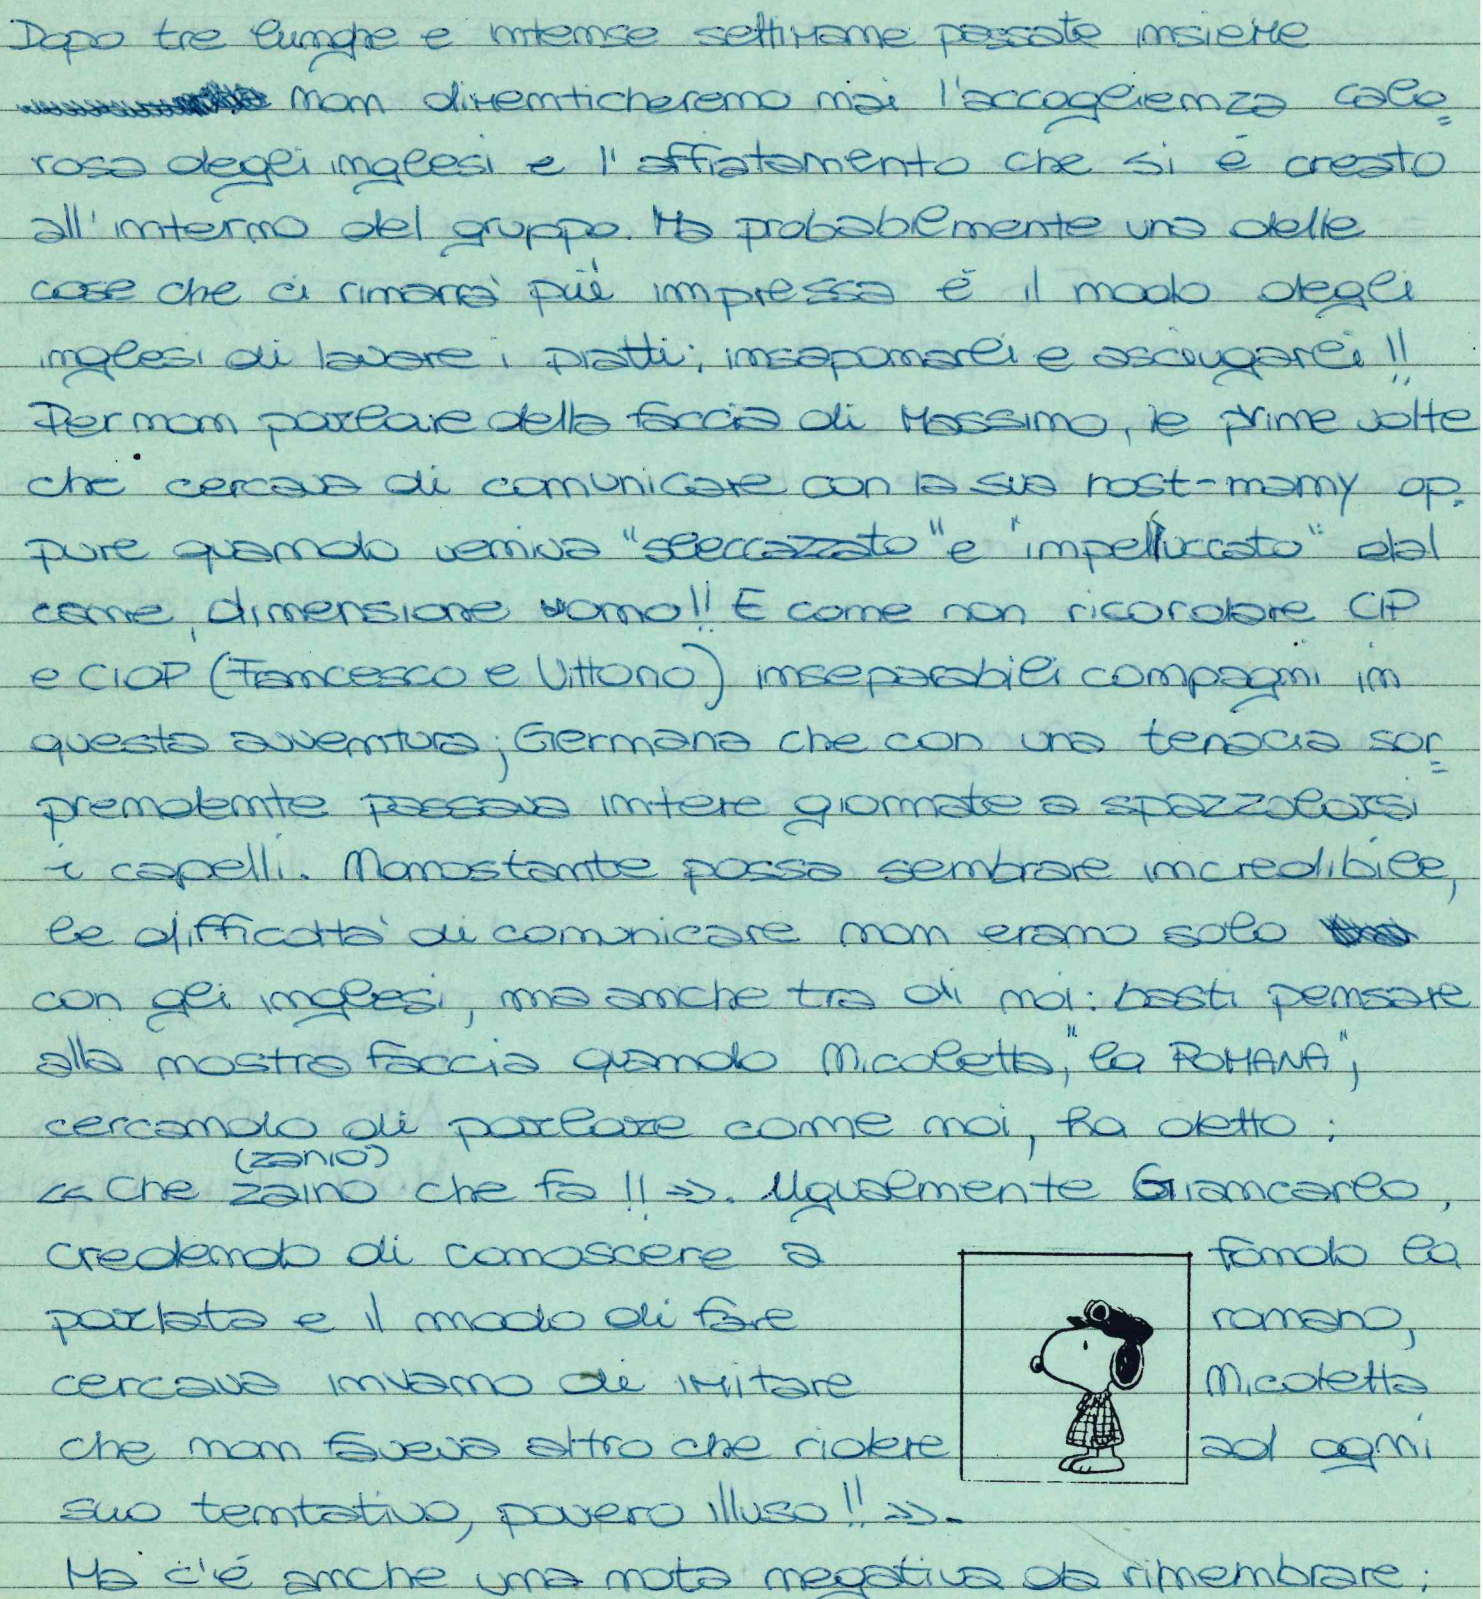 Dopo tre lunghe e intense settimane passate insieme
non dimenticheremo mai l'accoglienza calo=
rosa degli inglesi e l'affiatamento che si è creato
all'interno del gruppo. Ma probabilmente una delle
cose che ci rimarrà più impressa è il modo degli
inglesi di lavare i piatti; insaponarli e asciugarli!!
Per non parlare della faccia di Massimo, le prime volte
che cercava di comunicare con la sua host-mamy op.
pure quando veniva "sleccazzato" e "impelluccato" dal
cane, dimensione uomo!! E come non ricordare CIP
e CIOP (Francesco e Vittorio) inseparabili compagni in
questa avventura; Germana che con una tenacia sor=
prendente passava intere giornate a spazzolarsi
i capelli. Nonostante possa sembrare incredibile,
le difficoltà di comunicare non erano solo
con gli inglesi, ma anche tra di noi: basti pensare
alla nostra faccia quando Nicoletta, "la ROMANA",
cercando di parlare come noi, ha detto:
(zanio)
<< Che zaino che fa!! >>. Ugualmente Giancarlo,
credendo di conoscere a fondo la
parlata e il modo di fare romano,
cercava invano di imitare Nicoletta
che non faveva altro che ridere ad ogni
suo tentativo, povero illuso!! >>.
Ma c'è anche una nota negativa da rimembrare: